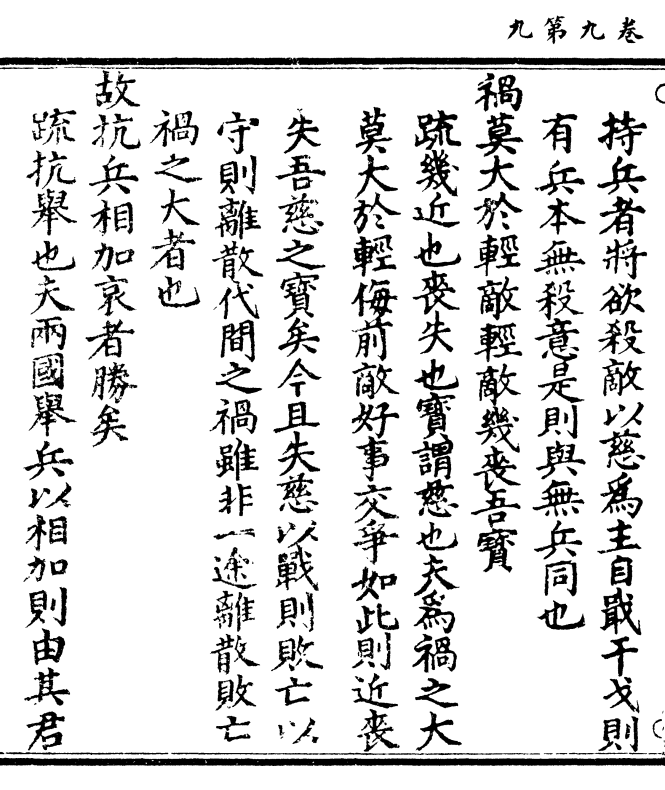 卷九第九
持兵者將欲殺敵以慈爲主自戢干戈則
有兵本無殺意是則與無兵同也
禍莫大於輕敵輕敵幾喪吾寶
疏幾近也喪失也寶謂慈也夫爲禍之大
莫大於輕侮前敵好事交爭如此則近喪
失吾慈之寶矣今且失慈以戰則敗亡以
守則離散代間之禍雖非一途離散敗亡
禍之大者也
故抗兵相加哀者勝矣
疏抗舉也夫兩國舉兵以相加則由其君